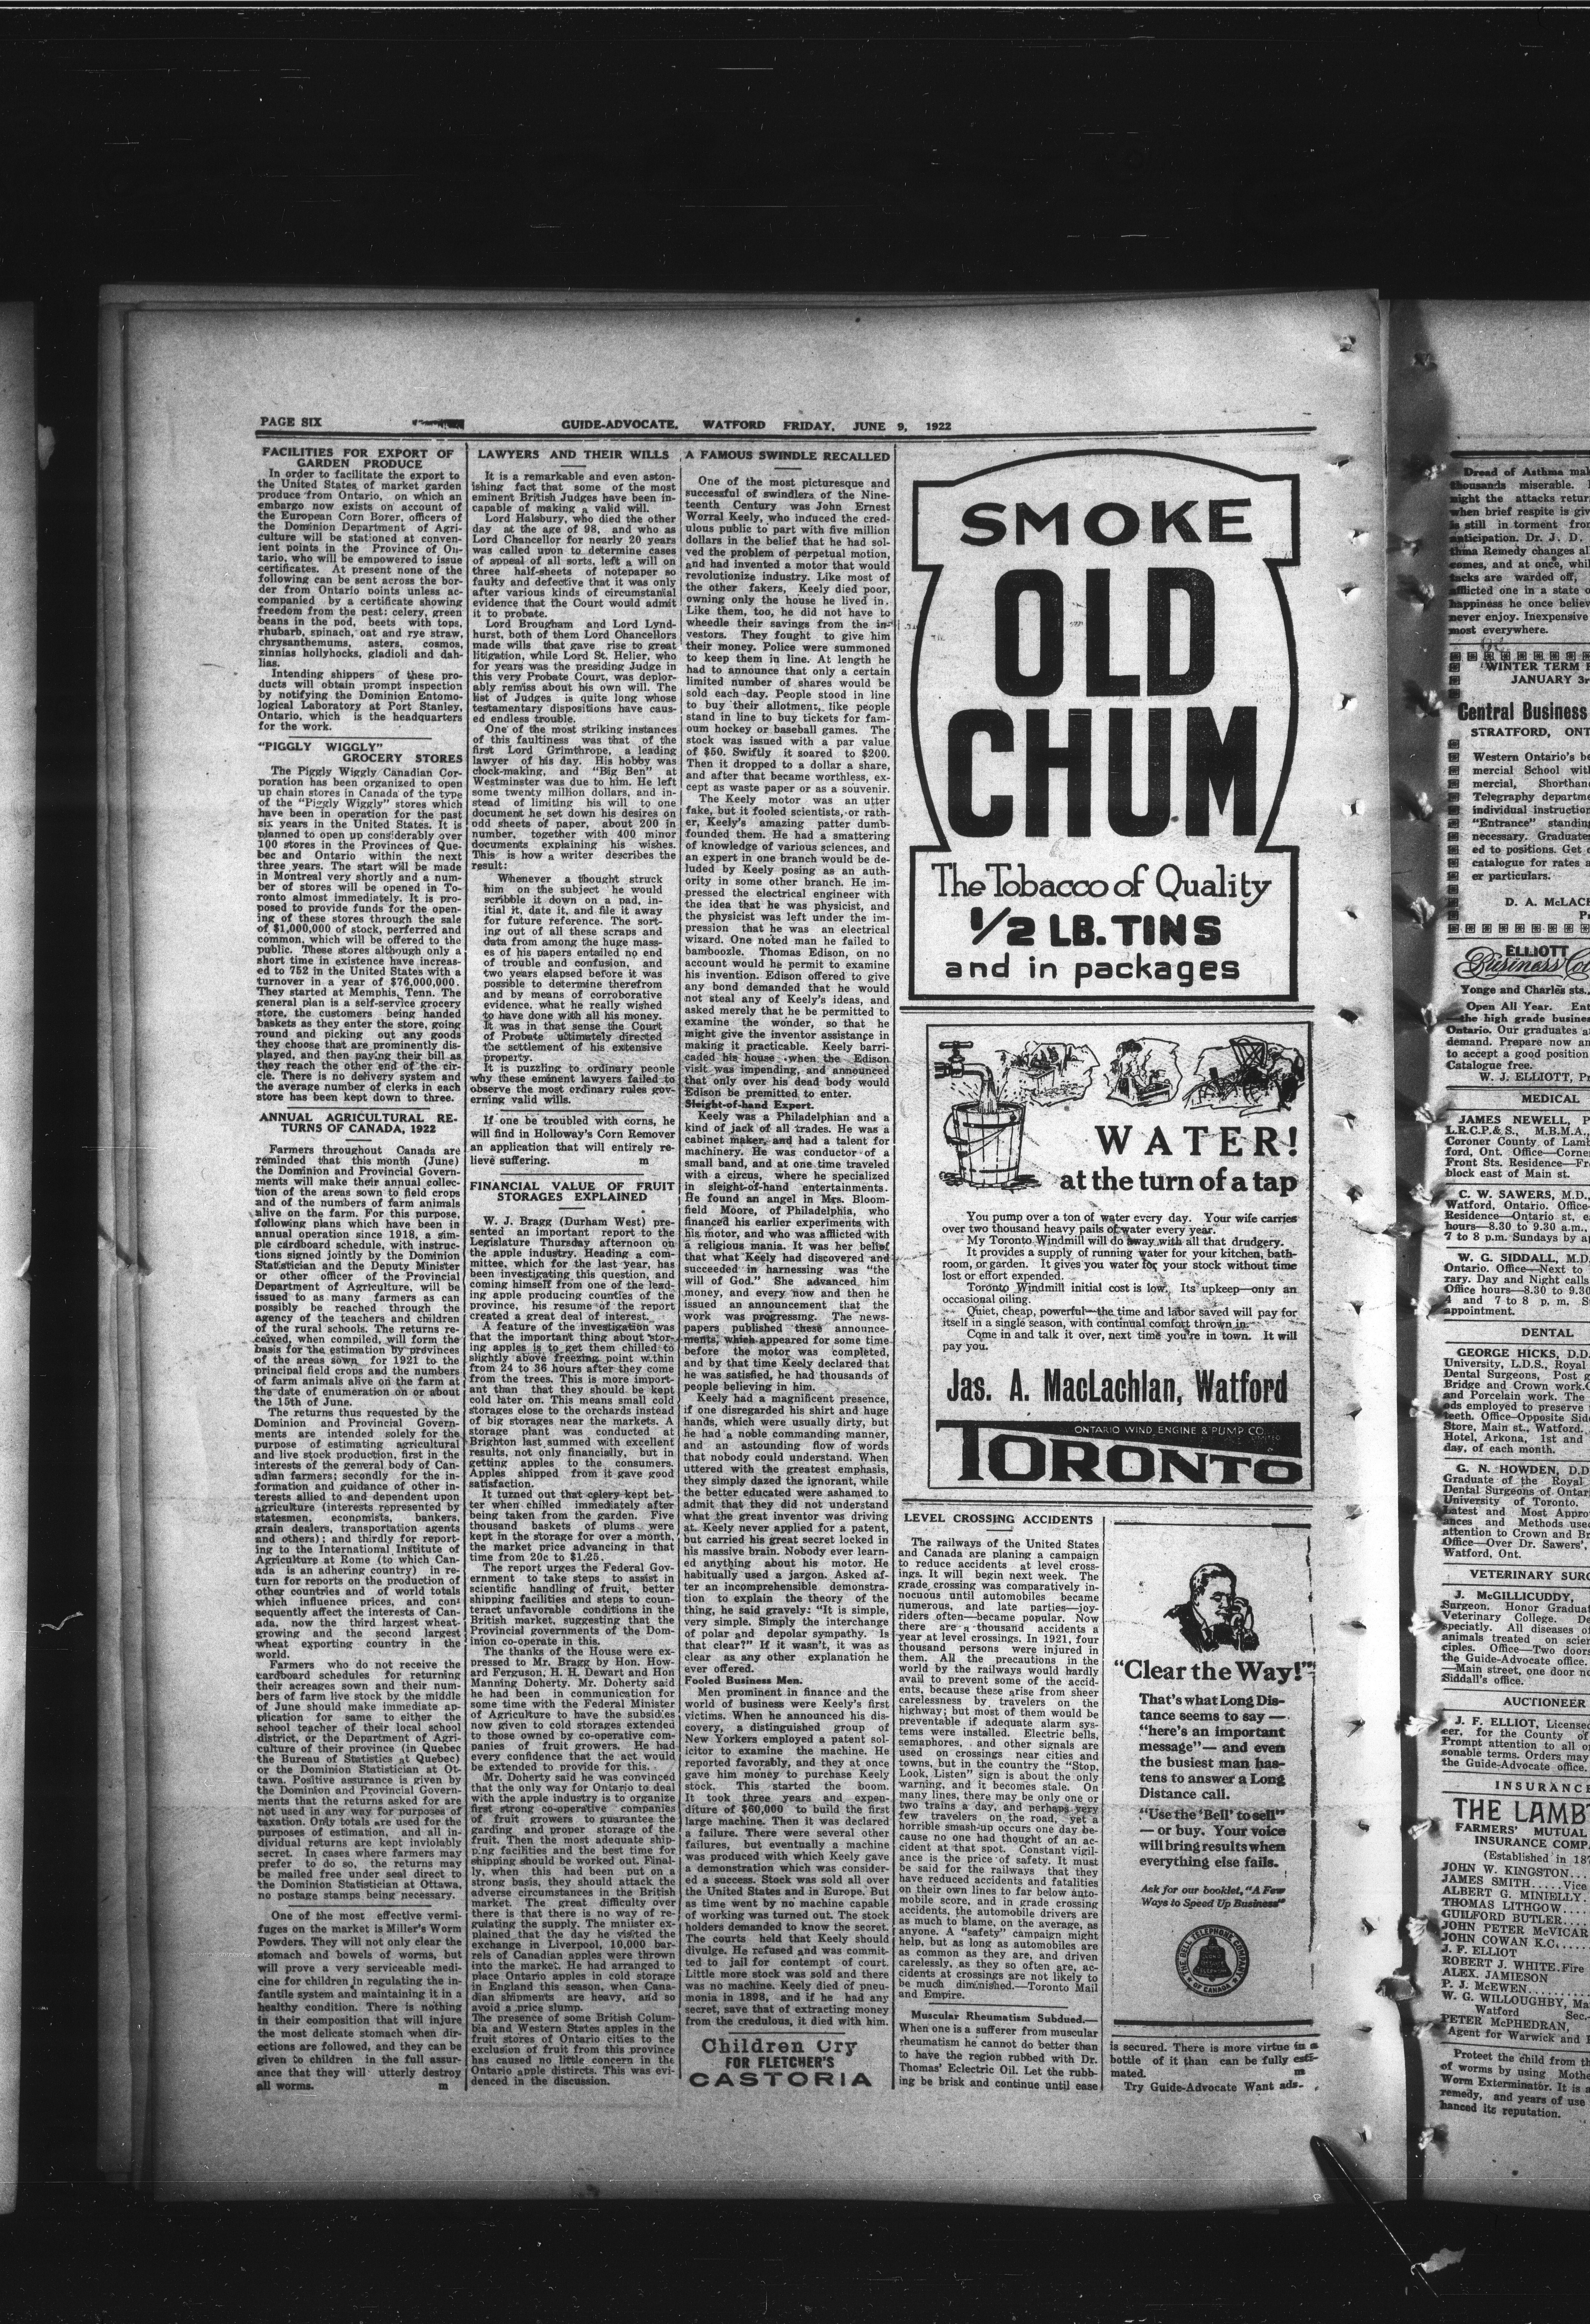 PAGE SIX
GUIDE-ADVOCATE, WATFORD FRIDAY, JUNE 9, 1922
FACILITIES FOR EXPORT OF
GARDEN PRODUCE
In order to facilitate the export to
the United States of market garden
produce from Ontario, on which an
embargo now exists on account of
the European Corn Borer, officers of
the Dominion Department of Agri-
culture will be stationed at conven-
ient points in the Province of On-
tario, who will be empowered to issue
certificates. At present none of the
following can be sent across the bor-
der from Ontario points unless ac-
companied by a certificate showing
freedom from the pest: celery, green
beans in the pod, beets with tops,
rhubarb, spinach, oat and rye straw,
chrysanthemums, asters, cosmos,
zinnias hollyhocks, gladioli and dah-
lias.
Intending shippers of these pro-
ducts will obtain prompt inspection
by notifying the Dominion Entomo-
logical Laboratory at Port Stanley,
Ontario, which is the headquarters
for the work.
"PIGGLY WIGGLY"
GROCERY STORES
The Piggly Wiggly Canadian Cor-
poration has been organized to open
up chain stores in Canada of the type
of the "Piggly Wiggly" stores which
have been in operation for the past
six years in the United States. It is
planned to open up considerably over
100 stores in the Provinces of Que-
bec and Ontario within the next
three years. The start will be made
in Montreal very shortly and a num-
ber of stores will be opened in To-
ronto almost immediately. It is pro-
posed to provide funds for the open-
ing of these stores through the sale
of $1,000,000 of stock, perferred and
common, which will be offered to the
public. These stores although only a
short time in existence have increas-
ed to 752 in the United States with a
turnover in a year of $76,000,000.
They started at Memphis, Tenn. The
general plan is a self-service grocery
store, the customers being handed
baskets as they enter the store, going
round and picking out any goods
they choose that are prominently dis-
played, and then paying their bill as
they reach the other end of the cir-
cle. There is no delivery system and
the average number of clerks in each
store has been kept down to three.
ANNUAL AGRICULTURAL RE-
TURNS OF CANADA, 1922
Farmers throughout Canada are
reminded that this month (June)
the Dominion and Provincial Govern-
ments will make their annual collec-
tion of the areas sown to field crops
and of the numbers of farm animals
alive on the farm. For this purpose,
following plans which have been in
annual operation since 1918, a sim-
ple cardboard schedule, with instruc-
tions signed jointly by the Dominion
Statistician and the Deputy Minister
or other officer of the Provincial
Department of Agriculture, will be
issued to as many farmers as can
possibly be reached through the
agency of the teachers and children
of the rural schools. The returns re-
ceived, when compiled, will form the
basis for the estimation by provinces
of the areas sown for 1921 to the
principal field crops and the numbers
of farm animals alive on the farm at
the date of enumeration on or about
the 15th of June.
The returns thus requested by the
Dominion and Provincial Govern-
ments are intended solely for the
purpose of estimating agricultural
and live stock production, first in the
interests of the general body of Can-
adian farmers; secondly for the in-
formation and guidance of other in-
terests allied to and dependent upon
agriculture (interests represented by
statesmen, economists, bankers,
grain dealers, transportation agents
and others); and thirdly for report-
ing to the International Institute of
Agriculture at Rome (to which Can-
ada is an adhering country) in re-
turn for reports on the production of
other countries and of world totals
which influence prices, and con-
sequently affect the interests of Can-
ada, now the third largest wheat-
growing and the second largest
wheat exporting country in the
world.
Farmers who do not receive the
cardboard schedules for returning
their acreages sown and their num-
bers of farm live stock by the middle
of June should make immediate ap-
plication for same to either the
school teacher of their local school
district, or the Department of Agri-
culture of their province (in Quebec
the Bureau of Statistics at Quebec)
or the Dominion Statistician at Ot-
tawa. Positive assurance is given by
the Dominion and Provincial Govern-
ments that the returns asked for are
not used in any way for purposes of
taxation. Only totals are used for the
purposes of estimation, and all in-
dividual returns are kept inviolably
secret. In cases where farmers may
prefer to do so, the returns may
be mailed free under seal direct to
the Dominion Statistician at Ottawa,
no postage stamps being necessary.
One of the most effective vermi-
fuges on the market is Miller's Worm
Powders. They will not only clear the
stomach and bowels of worms, but
will prove a very serviceable medi-
cine for children in regulating the in-
fantile system and maintaining it in a
healthy condition. There is nothing
in their composition that will injure
the most delicate stomach when dir-
ections are followed, and they can be
given to children in the full assur-
ance that they will utterly destroy
all worms. m
LAWYERS AND THEIR WILLS
It is a remarkable and even aston-
ishing fact that some of the most
eminent British Judges have been in-
capable of making a valid will.
Lord Halsbury, who died the other
day at the age of 98, and who as
Lord Chancellor for nearly 20 years
was called upon to determine cases
of appeal of all sorts, left a will on
three half-sheets of notepaper so
faulty and defective that it was only
after various kinds of circumstantial
evidence that the Court would admit
it to probate.
Lord Brougham and Lord Lynd-
hurst, both of them Lord Chancellors
made wills that gave rise to great
litigation, while Lord St. Helier, who
for years was the presiding Judge in
this very Probate Court, was deplor-
ably remiss about his own will. The
list of Judges is quite long whose
testamentary dispositions have caus-
ed endless trouble.
One of the most striking instances
of this faultiness was that of the
first Lord Grimthrope, a leading
lawyer of his day. His hobby was
clock-making, and "Big Ben" at
Westminster was due to him. He left
some twenty million dollars, and in-
stead of limiting his will to one
document he set down his desires on
odd sheets of paper, about 200 in
number, together with 400 minor
documents explaining his wishes.
This is how a writer describes the
result:
Whenever a thought struck
him on the subject he would
scribble it down on a pad, in-
itial it, date it, and file it away
for future reference. The sort-
ing out of all these scraps and
data from among the huge mass-
es of his papers entailed no end
of trouble and confusion, and
two years elapsed before it was
possible to determine therefrom
and by means of corroborative
evidence, what he really wished
to have done with all his money.
It was in that sense the Court
of Probate ultimately directed
the settlement of his extensive
property.
It is puzzling to ordinary people
why these eminent lawyers failed to
observe the most ordinary rules gov-
erning valid wills.
If one be troubled with corns, he
will find in Holloway's Corn Remover
an application that will entirely re-
lieve suffering. m
FINANCIAL VALUE OF FRUIT
STORAGES EXPLAINED
W. J. Bragg (Durham West) pre-
sented an important report to the
Legislature Thursday afternoon on
the apple industry. Heading a com-
mittee, which for the last year, has
been investigating this question, and
coming himself from one of the lead-
ing apple producing counties of the
province, his resume of the report
created a great deal of interest.
A feature of the investigation was
that the important thing about stor-
ing apples is to get them chilled to
slightly above freezing point within
from 24 to 36 hours after they come
from the trees. This is more import-
ant than that they should be kept
cold later on. This means small cold
storages close to the orchards instead
of big storages near the markets. A
storage plant was conducted at
Brighton last summed with excellent
results, not only financially, but in
getting apples to the consumers.
Apples shipped from it gave good
satisfaction.
It turned out that celery kept bet-
ter when chilled immediately after
being taken from the garden. Five
thousand baskets of plums were
kept in the storage for over a month,
the market price advancing in that
time from 20c to $1.25.
The report urges the Federal Gov-
ernment to take steps to assist in
scientific handling of fruit, better
shipping facilities and steps to coun-
teract unfavorable conditions in the
British market, suggesting that the
Provincial governments of the Dom-
inion co-operate in this.
The thanks of the House were ex-
pressed to Mr. Bragg by Hon. How-
ard Ferguson, H. H. Dewart and Hon
Manning Doherty. Mr. Doherty said
he had been in communication for
some time with the Federal Minister
of Agriculture to have the subsidies
now given to cold storages extended
to those owned by co-operative com-
panies of fruit growers. He had
every confidence that the act would
be extended to provide for this.
Mr. Doherty said he was convinced
that the only way for Ontario to deal
with the apple industry is to organize
first strong co-operative companies
of fruit growers to guarantee the
garding and proper storage of the
fruit. Then the most adequate ship-
ping facilities and the best time for
shipping should be worked out. Final-
ly, when this had been put on a
strong basis, they should attack the
adverse circumstances in the British
market. The great difficulty over
there is that there is no way of re-
gulating the supply. The mniister ex-
plained that the day he visited the
exchange in Liverpool, 10,000 bar-
rels of Canadian apples were thrown
into the market. He had arranged to
place Ontario apples in cold storage
in England this season, when Cana-
dian shipments are heavy, and so
avoid a price slump.
The presence of some British Colum-
bia and Western States apples in the
fruit stores of Ontario cities to the
exclusion of fruit from this province
has caused no little concern in the
Ontario apple distircts. This was evi-
denced in the discussion.
A FAMOUS SWINDLE RECALLED
One of the most picturesque and
successful of swindlers of the Nine-
teenth Century was John Ernest
Worral Keely, who induced the cred-
ulous public to part with five million
dollars in the belief that he had sol-
ved the problem of perpetual motion,
and had invented a motor that would
revolutionize industry. Like most of
the other fakers, Keely died poor,
owning only the house he lived in.
Like them, too, he did not have to
wheedle their savings from the in-
vestors. They fought to give him
their money. Police were summoned
to keep them in line. At length he
had to announce that only a certain
limited number of shares would be
sold each day. People stood in line
to buy their allotment, like people
stand in line to buy tickets for fam-
oum hockey or baseball games. The
stock was issued with a par value
of $50. Swiftly it soared to $200.
Then it dropped to a dollar a share,
and after that became worthless, ex-
cept as waste paper or as a souvenir.
The Keely motor was an utter
fake, but it fooled scientists, or rath-
er, Keely's amazing patter dumb-
founded them. He had a smattering
of knowledge of various sciences, and
an expert in one branch would be de-
luded by Keely posing as an auth-
ority in some other branch. He im-
pressed the electrical engineer with
the idea that he was physicist, and
the physicist was left under the im-
pression that he was an electrical
wizard. One noted man he failed to
bamboozle. Thomas Edison, on no
account would he permit to examine
his invention. Edison offered to give
any bond demanded that he would
not steal any of Keely's ideas, and
asked merely that he be permitted to
examine the wonder, so that he
might give the inventor assistance in
making it practicable. Keely barri-
caded his house when the Edison
visit was impending, and announced
that only over his dead body would
Edison be premitted to enter.
Sleight-of-hand Expert.
Keely was a Philadelphian and a
kind of jack of all trades. He was a
cabinet maker, and had a talent for
machinery. He was conductor of a
small band, and at one time traveled
with a circus, where he specialized
in sleight-of-hand entertainments.
He found an angel in Mrs. Bloom-
field Moore, of Philadelphia, who
financed his earlier experiments with
his motor, and who was afflicted with
a religious mania. It was her belief
that what Keely had discovered and
succeeded in harnessing was "the
will of God." She advanced him
money, and every now and then he
issued an announcement that the
work was progressing. The news-
papers published these announce-
ments, which appeared for some time
before the motor was completed,
and by that time Keely declared that
he was satisfied, he had thousands of
people believing in him.
Keely had a magnificent presence,
if one disregarded his shirt and huge
hands, which were usually dirty, but
he had a noble commanding manner,
and an astounding flow of words
that nobody could understand. When
uttered with the greatest emphasis,
they simply dazed the ignorant, while
the better educated were ashamed to
admit that they did not understand
what the great inventor was driving
at. Keely never applied for a patent,
but carried his great secret locked in
his massive brain. Nobody ever learn-
ed anything about his motor. He
habitually used a jargon. Asked af-
ter an incomprehensible demonstra-
tion to explain the theory of the
thing, he said gravely: "It is simple,
very simple. Simply the interchange
of polar and depolar sympathy. Is
that clear?" If it wasn't, it was as
clear as any other explanation he
ever offered.
Fooled Business Men.
Men prominent in finance and the
world of business were Keely's first
victims. When he announced his dis-
covery, a distinguished group of
New Yorkers employed a patent sol-
icitor to examine the machine. He
reported favorably, and they at once
gave him money to purchase Keely
stock. This started the boom.
It took three years and expen-
diture of $60,000 to build the first
large machine. Then it was declared
a failure. There were several other
failures, but eventually a machine
was produced with which Keely gave
a demonstration which was consider-
ed a success. Stock was sold all over
the United States and in Europe. But
as time went by no machine capable
of working was turned out. The stock
holders demanded to know the secret.
The courts held that Keely should
divulge. He refused and was commit-
ted to jail for contempt of court.
Little more stock was sold and there
was no machine. Keely died of pneu-
monia in 1898, and if he had any
secret, save that of extracting money
from the credulous, it died with him.
Children Cry
FOR FLETCHER'S
CASTORIA
SMOKE
OLD
CHUM
The Tobacco of Quality
1/2 LB. TINS
and in packages
WATER!
at the turn of a tap
You pump over a ton of water every day. Your wife carries
over two thousand heavy pails of water every year.
My Toronto Windmill will do away with all that drudgery.
It provides a supply of running water for your kitchen, bath-
room, or garden. It gives you water for your stock without time
lost or effort expended.
Toronto Windmill initial cost is low. Its upkeep—only an
occasional oiling.
Quiet, cheap, powerful—the time and labor saved will pay for
itself in a single season, with continual comfort thrown in.
Come in and talk it over, next time you're in town. It will
pay you.
Jas. A. MacLachlan, Watford
ONTARIO WIND ENGINE & PUMP CO.
LIMITED
TORONTO
LEVEL CROSSING ACCIDENTS
The railways of the United States
and Canada are planing a campaign
to reduce accidents at level cross-
ings. It will begin next week. The
grade crossing was comparatively in-
nocuous until automobiles became
numerous, and late parties—joy-
riders often—became popular. Now
there are a thousand accidents a
year at level crossings. In 1921, four
thousand persons were injured in
them. All the precautions in the
world by the railways would hardly
avail to prevent some of the accid-
ents, because these arise from sheer
carelessness by travelers on the
highway; but most of them would be
preventable if adequate alarm sys-
tems were installed. Electric bells,
semaphores, and other signals are
used on crossings near cities and
towns, but in the country the "Stop,
Look, Listen" sign is about the only
warning, and it becomes stale. On
many lines, there may be only one or
two trains a day, and perhaps very
few travelers on the road, yet a
horrible smash-up occurs one day be-
cause no one had thought of an ac-
cident at that spot. Constant vigil-
ance is the price of safety. It must
be said for the railways that they
have reduced accidents and fatalities
on their own lines to far below auto-
mobile score, and in grade crossing
accidents, the automobile drivers are
as much to blame, on the average, as
anyone. A "safety" campaign might
help, but as long as automobiles are
as common as they are, and driven
carelessly, as they so often are, ac-
cidents at crossings are not likely to
be much diminished.—Toronto Mail
and Empire.
Muscular Rheumatism Subdued.—
When one is a sufferer from muscular
rheumatism he cannot do better than
to have the region rubbed with Dr.
Thomas' Eclectric Oil. Let the rubb-
ing be brisk and continue until ease
"Clear the Way!"
That's what Long Dis-
tance seems to say —
"here's an important
message"— and even
the busiest man has-
tens to answer a Long
Distance call.
"Use the 'Bell' to sell"
— or buy. Your voice
will bring results when
everything else fails.
Ask for our booklet, "A Few
Ways to Speed Up Business"
THE BELL TELEPHONE COMPANY
OF CANADA
is secured. There is more virtue in a
bottle of it than can be fully esti-
mated. m
Try Guide-Advocate Want ads.
Dread of Asthma
thousands miserable.
might the attacks
when brief respite is
is still in torment
anticipation. Dr. J. D.
thma Remedy changes
comes, and at once,
tacks are warded off,
afflicted one in a state
happiness he once
never enjoy. Inexpensive
most everywhere.
WINTER TERM
JANUARY
Central Business
STRATFORD,
Western Ontario's
mercial School
mercial,
Telegraphy
individual
"Entrance" standing
necessary.
ed to positions. Get
catalogue for rates
er particulars.
D. A.
ELLIOTT
Business
Yonge and Charles sts.,
Open All Year.
—the high grade
Ontario. Our graduates
demand. Prepare now
to accept a good position
Catalogue free.
W. J. ELLIOTT,
MEDICAL
JAMES NEWELL,
L.R.C.P.&S., M.B.M.A.,
Coroner County of
ford, Ont.
Front Sts.
block east of Main st.
C. W. SAWERS, M.D.,
Watford, Ontario.
Residence—Ontario st,
hours—8.30 to 9.30 a.m.,
7 to 8 p.m. Sundays by
W. G. SIDDALL, M.D.
Ontario. Office—Next to
rary. Day and Night calls
Office hours—8.30 to
4 and 7 to 8 p. m.
appointment.
DENTAL
GEORGE HICKS,
University, L.D.S., Royal
Dental Surgeons, Post
Bridge and Crown work.
and Porcelain work. The
ods employed to preserve
teeth. Office-Opposite
Store, Main st., Watford.
Hotel, Arkona, 1st and
day, of each month.
G. N. HOWDEN,
Graduate of the Royal
Dental Surgeons of
University of Toronto.
Latest and Most
ances and Methods
attention to Crown and
Office—Over Dr. Sawers',
Watford, Ont.
VETERINARY
J. McGILLICUDDY,
Surgeon. Honor
Veterinary College.
specialty. All diseases
animals treated on
ciples. Office—Two
the Guide-Advocate office.
—Main street, one door
Siddall's office.
AUCTIONEER
J. F. ELLIOT,
eer, for the County of
Prompt attention to all
sonable terms. Orders may
the Guide-Advocate office.
INSURANCE
THE
FARMERS' MUTUAL
INSURANCE
(Established in
JOHN W. KINGSTON
JAMES SMITH.....Vice
ALBERT G. MINIELLY
THOMAS LITHGOW
GUILFORD BUTLER
JOHN PETER McVICAR
JOHN COWAN K.C.
J. F. ELLIOT
ROBERT J. WHITE. Fire
ALEX. JAMIESON
P. J. McEWEN
W. G. WILLOUGHBY,
Watford Sec.
PETER McPHEDRAN,
Agent for Warwick and
Protect the child from
of worms by using
Worm Exterminator. It is
remedy, and years of use
hanced its reputation.